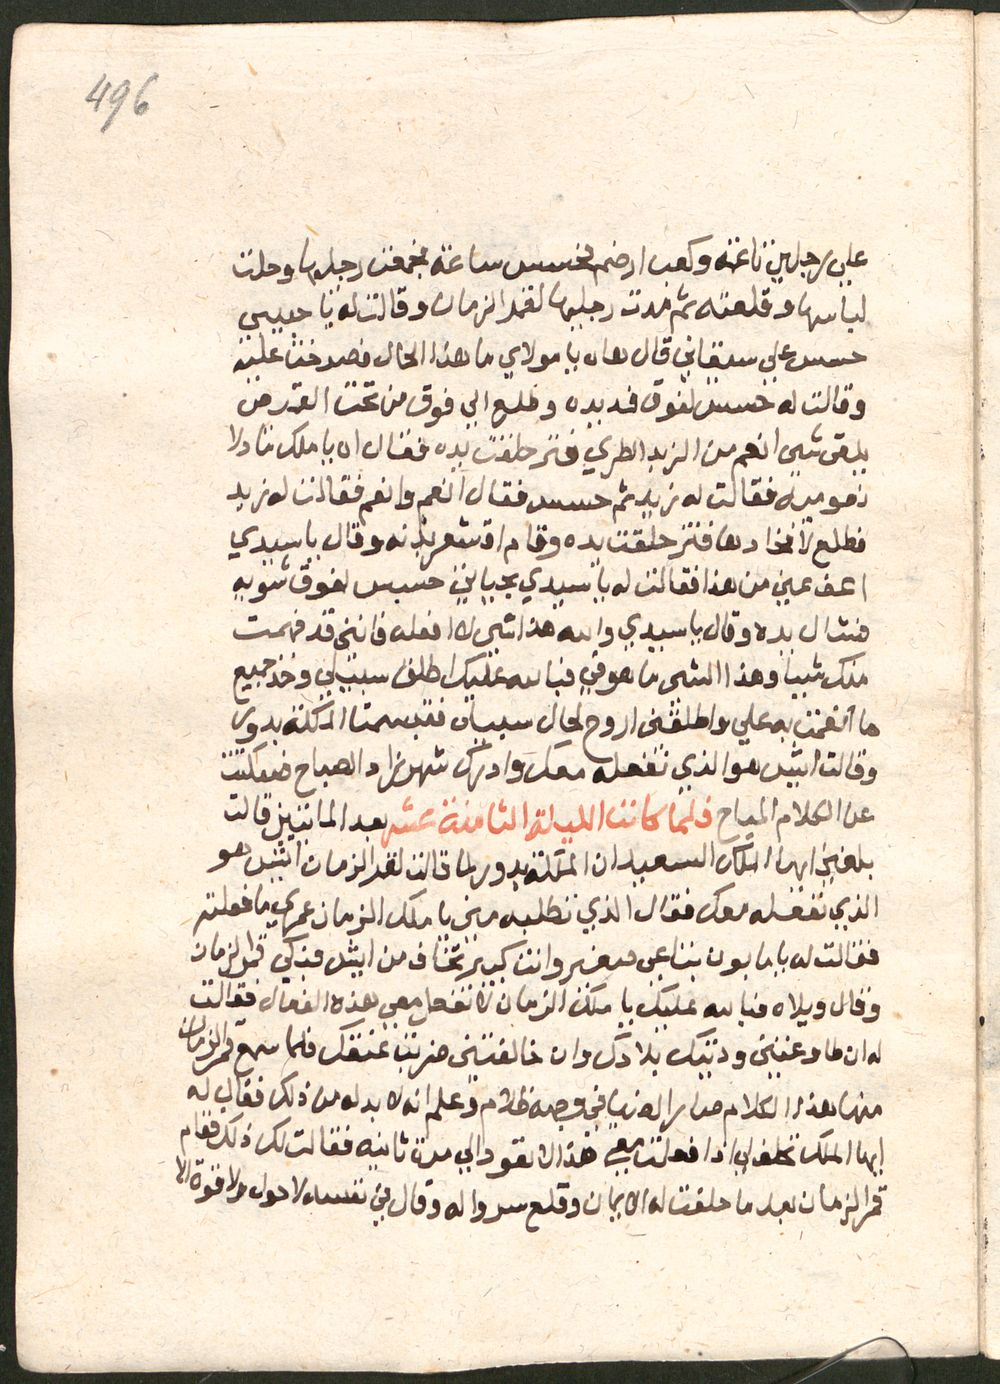 496
علي رجلين ناعمه وكعب ارضم فحسس ساعة فجمعت رجليها وحلت
لباسها وقلعته ثم مدت رجليها لقمر الزمان وقالت له يا حبيبي
حسس علي سيقاني قال هاه يا مولاي ما هذا الحال فصرخت عليه
وقالت له حسس لفوق فمد يده وطلع الي فوق من تحت
يلقي شي انعم من الزبد الطري فقال اه يا ملك
فقالت له زيد ثم حسس فقال انعم وانعم فقالت له زيد
فطلع لافخادها يده وقام اقشعر بدنه وقال يا سيدي
اعف عني من هذا فقالت له يا سيدي بحياتي حسس لفوق شويه
فشال يده وقال يا سيدي والله هذا شي لا افعله فانني قد فهمت
منك شيا وهذا الشي ما هو في فبالله عليك اطلق سبيلي وخذ جميع
ما انعمت به علي واطلقني اروح لحال سبيلي فتبسمت الملكة بدور
وقالت ايش هو الذي تفعله معك وادرك شهرزاد الصباح فسكتت
عن الكلام المباح فلما كانت الليلة الثامنة عشر بعد المائتين قالت
بلغني ايها الملك السعيد ان الملكة بدور لما قالت لقمر الزمان ايش هو
الذي تفعله معك فقال الذي تطلبه مني يا ملك الزمان عمري ما فعلته
فقالت له وانت كبير تخاف من ايش فبكي قمر الزمان
وقال ويلاه فبالله عليك يا ملك الزمان لا تفعل معي هذه الفعال فقالت
له ان طاوعتني وديتك بلادك وان خالفتني ضربت عنقك فلما سمع قمر الزمان
منها هذا الكلام صار الضيا في وجهه ظلام وعلم انه لا بد له من ذلك فقال له
ايها الملك تحلف لي اذا فعلت معي هذا لا تعود الي مرة ثانيه فقالت لك ذلك فقام
قمر الزمان بعد ما حلفت له الايمان وقلع سرواله وقال في نفسه لا حول ولا قوة الا